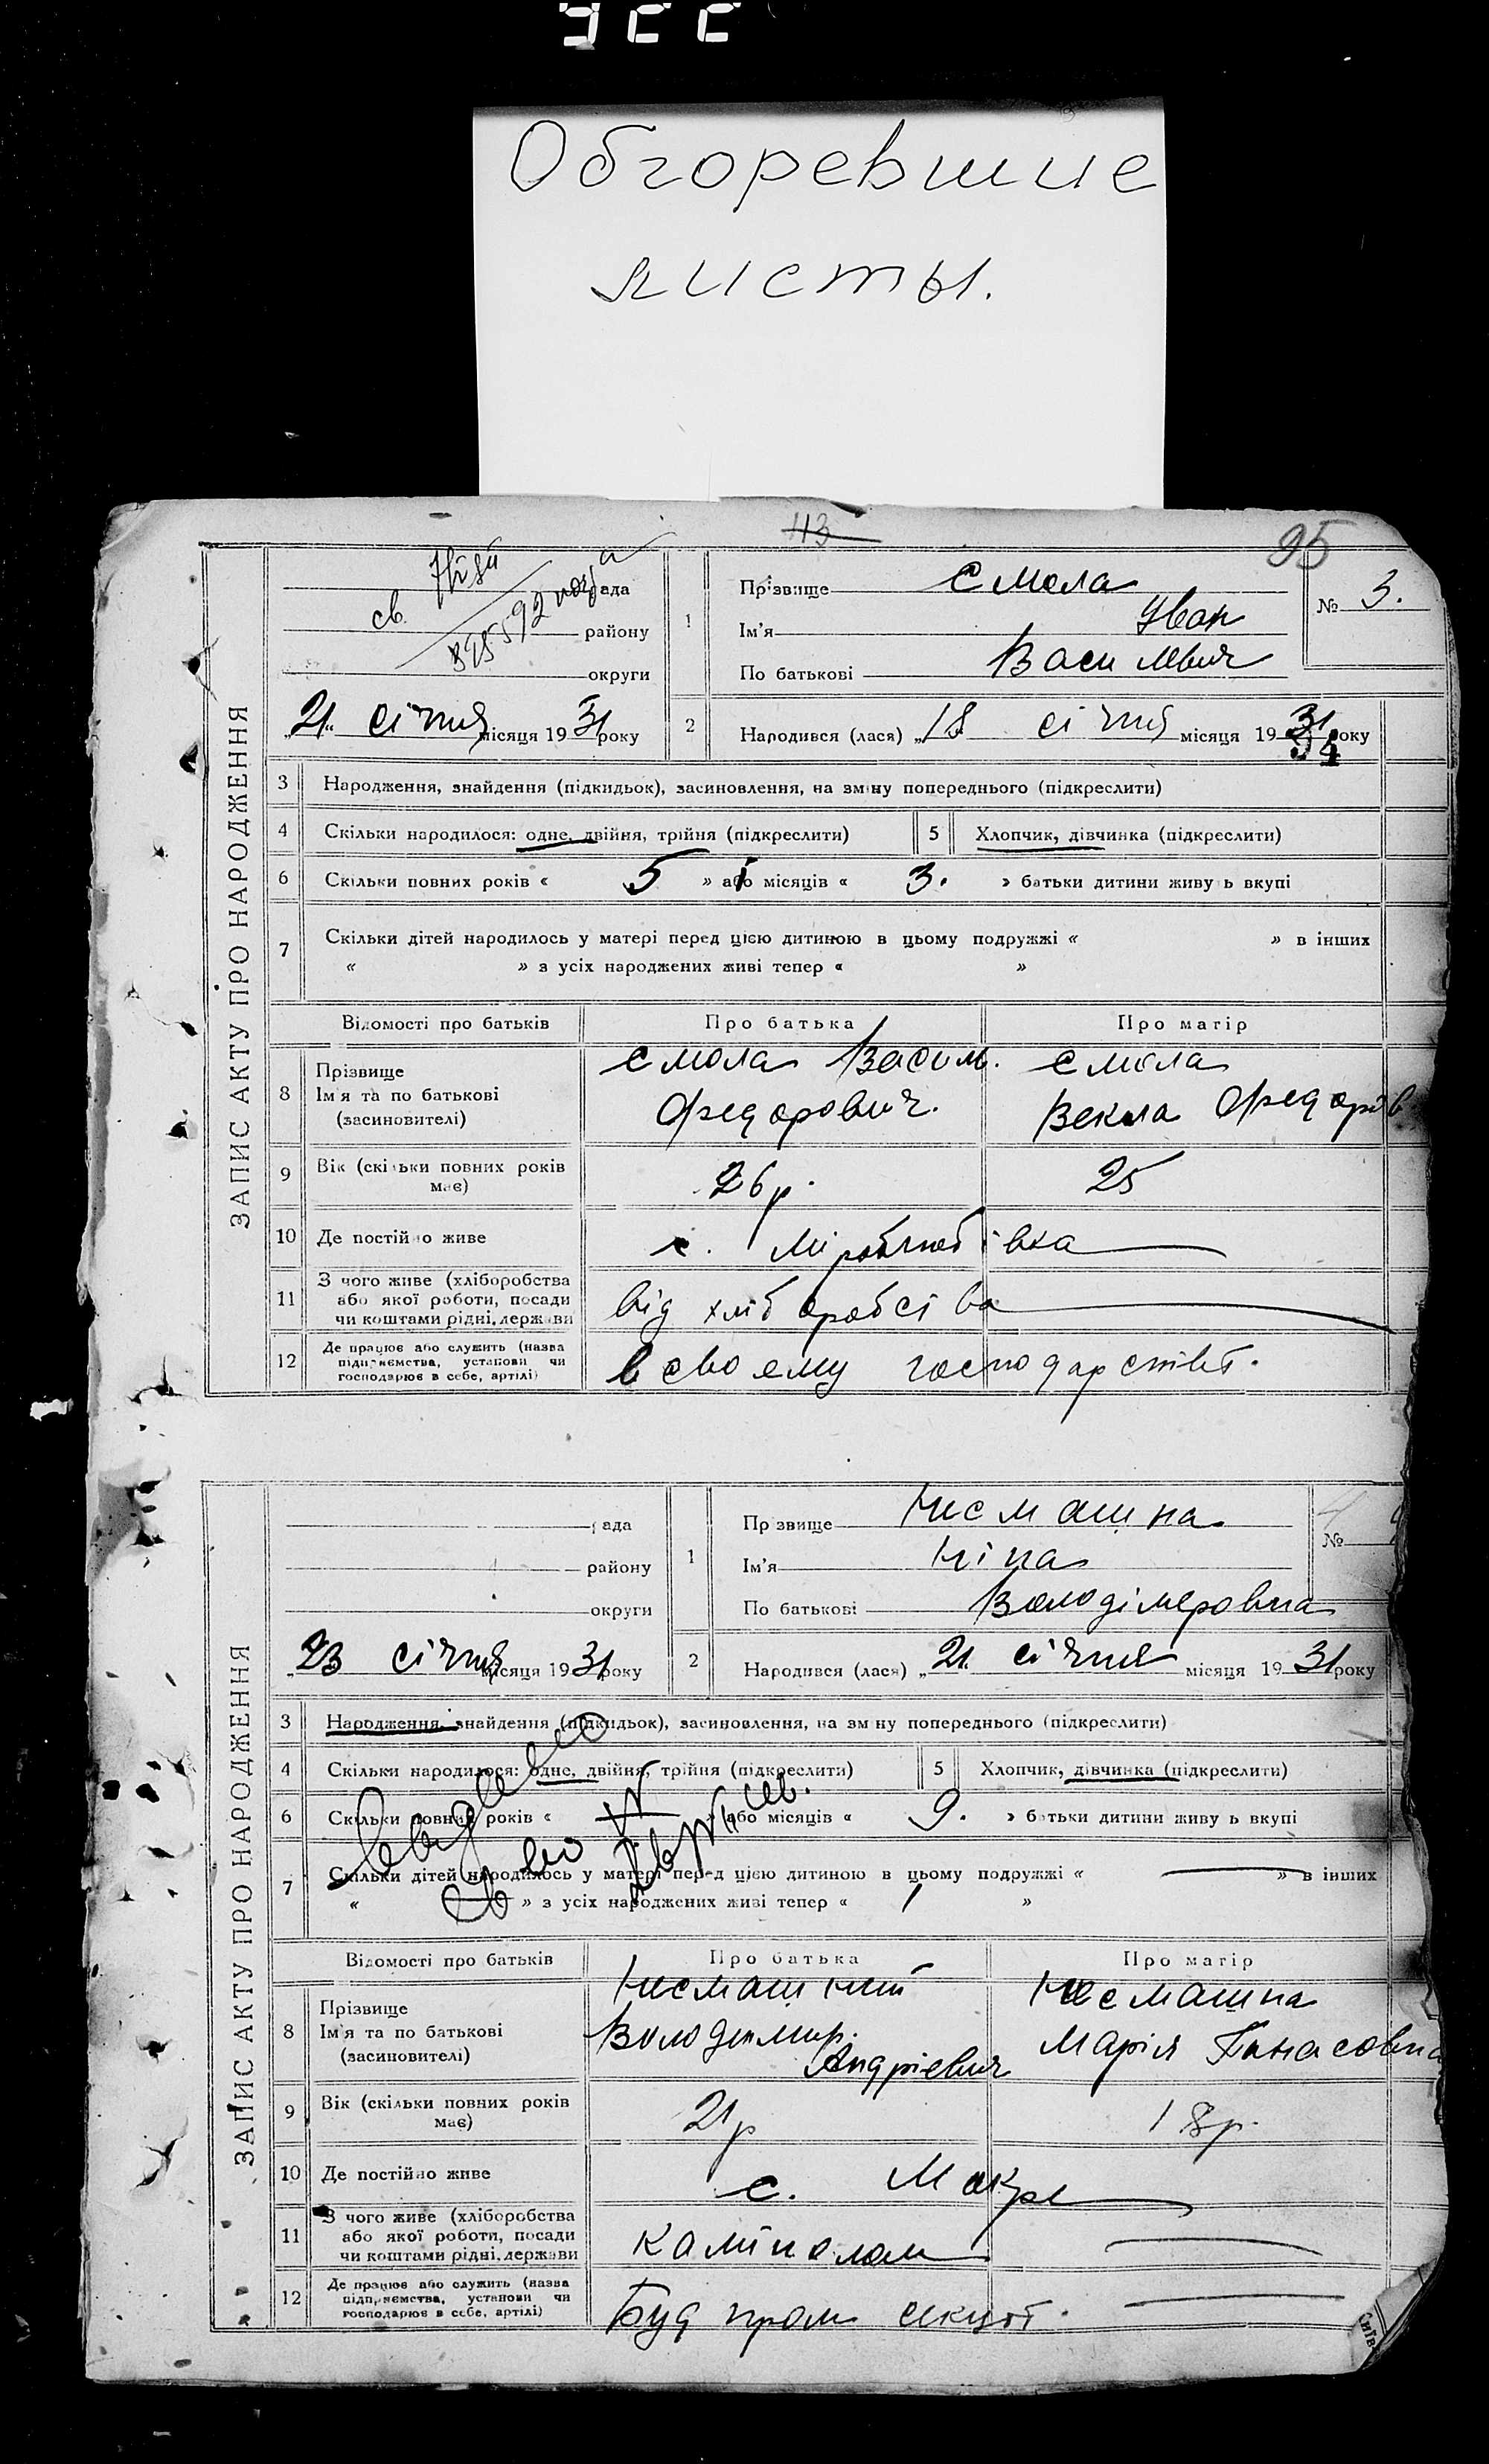 Обгоревшие
листы.
113
95
рада
району
округи
21 січня місяця 1931 року
1
Прізвище Смола
Ім'я Иван
По батькові Василівич
№ 3.
2
Народився (лася) „18 січня місяця 1931 року
ЗАПИС АКТУ ПРО НАРОДЖЕННЯ
3 Народження, знайдення (підкидьок), засиновлення, на зміну попереднього (підкреслити)
4 Скільки народилося: одне, двійня, трійня (підкреслити) 5 Хлопчик, дівчинка (підкреслити)
6 Скільки повних років « 5 » або місяців « 3. » батьки дитини живуть вкупі
7 Скільки дітей народилось у матері перед цією дитиною в цьому подружжі « » в інших
« » з усіх народжених живі тепер « »
Відомості про батьків Про батька Про матір
8 Прізвище
Ім'я та по батькові
(засиновителі)
Смола Васил.
Федорович.
Смола
Векла Федорів
9 Вік (скільки повних років
має)
26 р. 25
10 Де постійно живе с. Міролюбівка
11 З чого живе (хліборобства
або якої роботи, посади
чи коштами рідні, держави
від хліборобства
12 Де працює або служить (назва
підприємства, установи чи
господарює в себе, артілі)
в своему господарстві.
рада
району
округи
23 січня місяця 1931 року
1
Прізвище Нісмашна
Ім'я Ніна
По батькові Володімеровна
№
2
Народився (лася) „21 січня місяця 1931 року
ЗАПИС АКТУ ПРО НАРОДЖЕННЯ
3 Народження, знайдення (підкидьок), засиновлення, на зміну попереднього (підкреслити)
4 Скільки народилося: одне, двійня, трійня (підкреслити) 5 Хлопчик, дівчинка (підкреслити)
6 Скільки повних років « » або місяців « 9. » батьки дитини живуть вкупі
7 Скільки дітей народилось у матері перед цією дитиною в цьому подружжі « — » в інших
« » з усіх народжених живі тепер « 1 »
Відомості про батьків Про батька Про матір
8 Прізвище
Ім'я та по батькові
(засиновителі)
Володимир.
Андрієвич
Марія Панасовна
9 Вік (скільки повних років
має)
21 р 18 р.
10 Де постійно живе с.
11 З чого живе (хліборобства
або якої роботи, посади
чи коштами рідні, держави
Камінолом
12 Де працює або служить (назва
підприємства, установи чи
господарює в себе, артілі)
Буд пром